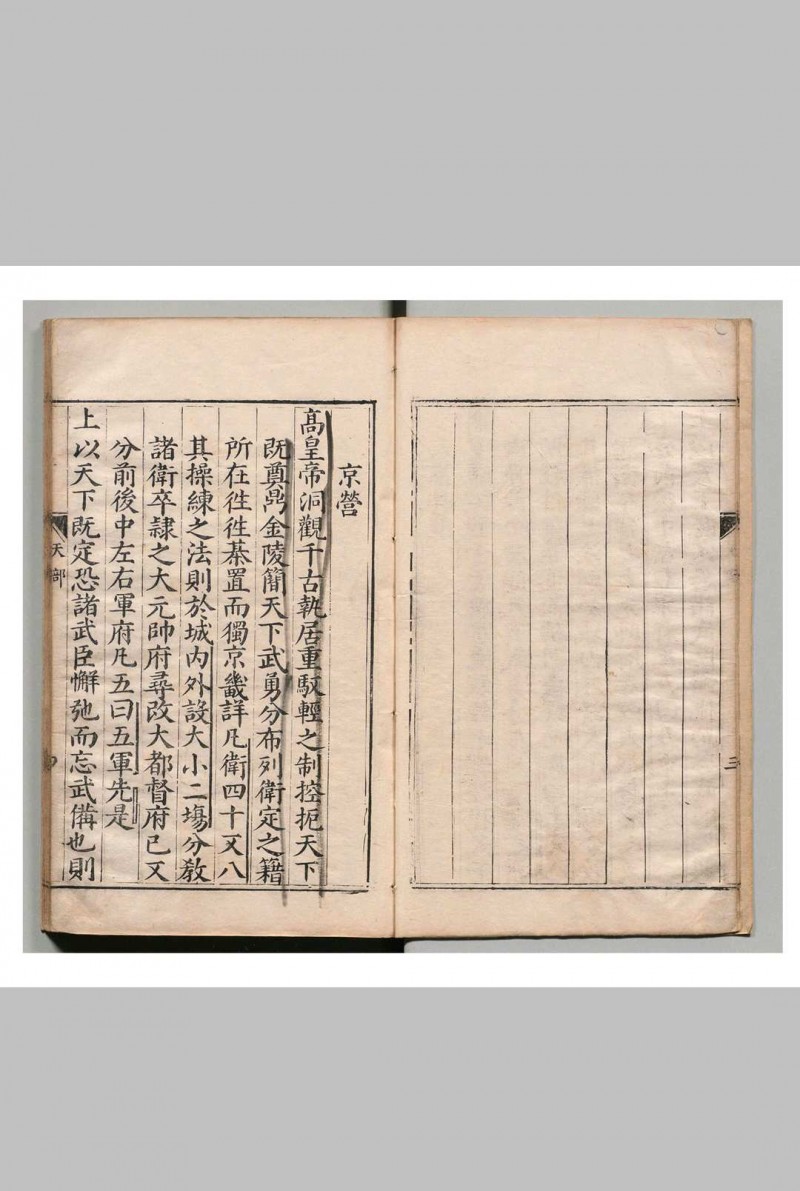 三
京營
高皇帝洞觀千古執居重馭輕之制控扼天下
既奠鼎金陵簡天下武勇分布列衛定之籍
所在徃徃棊置而獨京畿詳凡衛四十又八
其操練之法則於城內外設大小二塲分敎
諸衛卒隷之大元帥府尋改大都督府已又
分前後中左右軍府凡五曰五軍先是
上以天下既定恐諸武臣懈弛而忘武備也則
天部